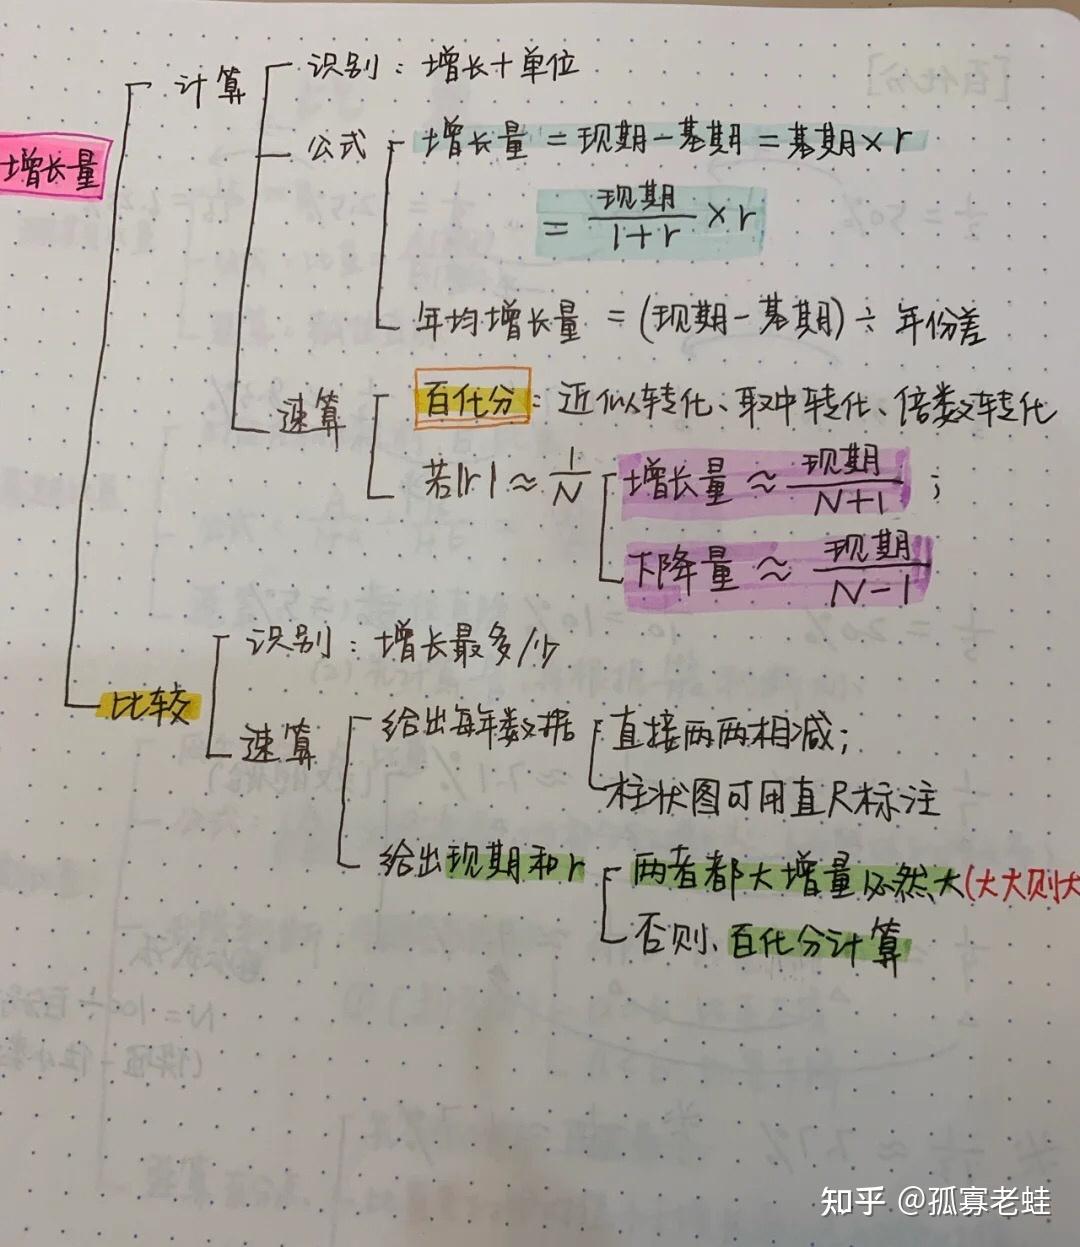 增长量
计算
识别：增长+单位
公式
增长量=现期-基期=基期×r
=现期/1+r ×r
年均增长量=(现期-基期)÷年份差
速算
百化分：近似转化、取中转化、倍数转化
若|r|≈1/N
增长量≈现期/N+1；
下降量≈现期/N-1
比较
识别：增长最多/少
速算
给出每年数据
直接两两相减；
柱状图可用直尺标注
给出现期和r
两者都大增量必然大(大大则大
否则、百化分计算
知乎 @孤寡老蛙